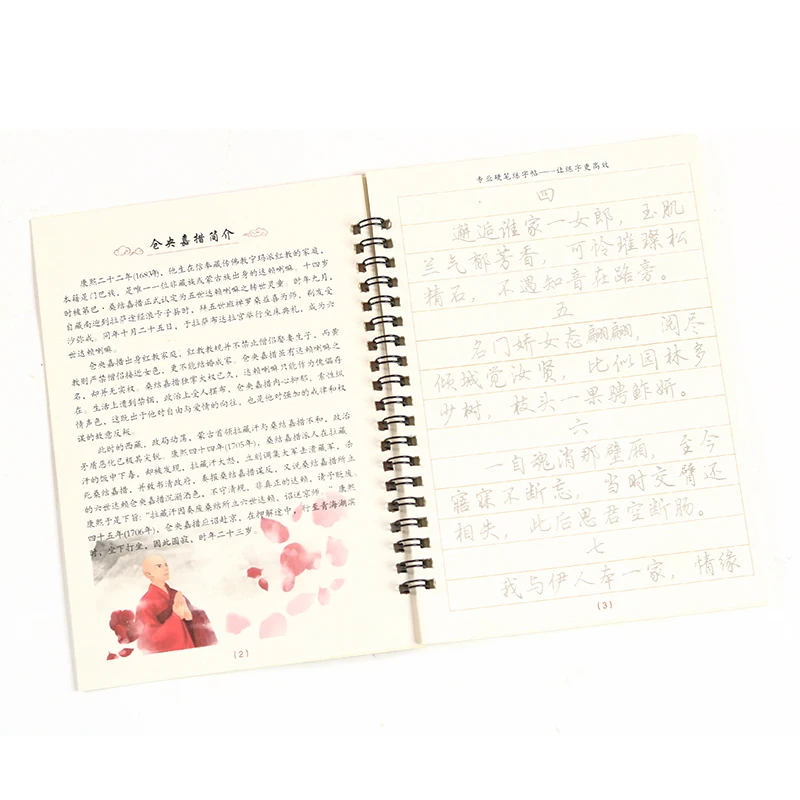 仓央嘉措简介
康熙二十二年(1683年)，他生在信奉藏传佛教宁玛派红教的家庭，
本籍是门巴族，是唯一一位非藏族或蒙古族出身的达赖喇嘛。十四岁
时被第巴·桑结嘉措正式认定为五世达赖喇嘛之转世灵童。时年九月，
自藏南迎到拉萨途经浪卡子县时，拜五世班禅罗桑益喜为师，剃发受
沙弥戒。同年十月二十五日，于拉萨布达拉宫举行坐床典礼，成为六
世达赖喇嘛。
仓央嘉措出身红教家庭，红教教规并不禁止僧侣娶妻生子，而黄
教则严禁僧侣接近女色，更不能结婚成家。仓央嘉措虽有达赖喇嘛之
名，却并无实权。桑结嘉措独掌大权已久，达赖喇嘛只能作为傀儡存
在。生活上遭到禁锢，政治上受人摆布，仓央嘉措内心抑郁，索性纵
情声色，这既出于他对自由与爱情的向往，也是他对强加的戒律和权
谋的故意反叛。
此时的西藏，政局动荡，蒙古首领拉藏汗与桑结嘉措不和，政治
矛盾恶化已极其尖锐。康熙四十四年(1705年)，桑结嘉措派人在拉藏
汗的饭中下毒，却被发现，拉藏汗大怒，立刻调集大军击溃藏军，杀
死桑结嘉措，并致书清政府，奏报桑结嘉措谋反，又说桑结嘉措所立
的六世达赖仓央嘉措沉溺酒色，不守清规，非真正的达赖，请予贬废。
康熙于是下旨：“拉藏汗因奏废桑结所立六世达赖，诏送京师。”康熙
四十五年(1706年)，仓央嘉措应诏赴京，在押解途中，行至青海湖滨
时，坐下打坐，因此圆寂，时年二十三岁。
(2)
专业硬笔练字帖——让练字更高效
四
邂逅谁家一女郎，玉肌
兰气郁芳香，可怜璀璨松
精石，不遇知音在路旁。
五
名门娇女态翩翩，阅尽
倾城觉汝贤，比似园林多
少树，枝头一果骋鲜妍。
六
一自魂消那壁厢，至今
寤寐不断忘，当时交臂还
相失，此后思君空断肠。
七
我与伊人本一家，情缘
(3)